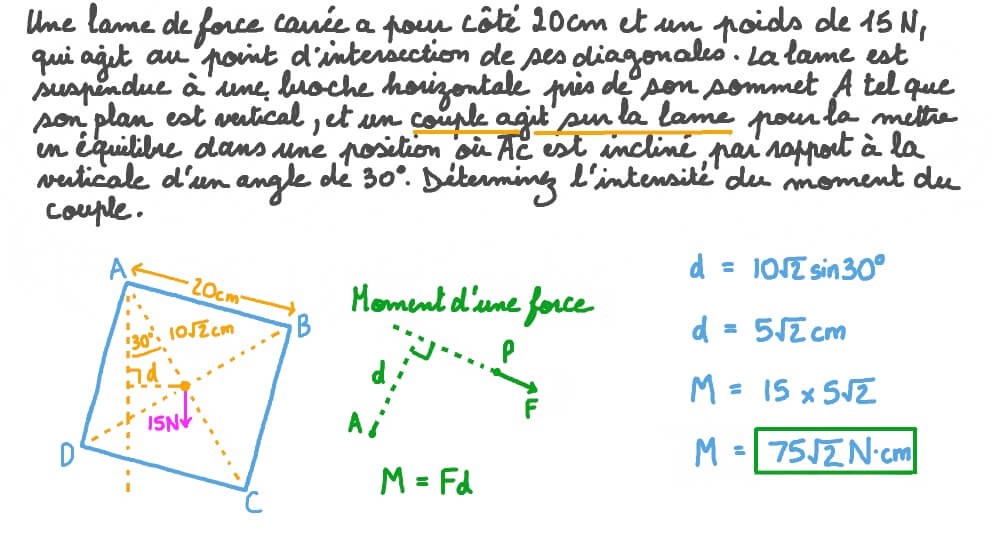 Une lame de force carrée a pour côté 20cm et un poids de 15 N,
qui agit au point d'intersection de ses diagonales. La lame est
suspendue à une broche horizontale près de son sommet A tel que
son plan est vertical, et un couple agit sur la lame pour la mettre
en équilibre dans une position où AC est incliné par rapport à la
verticale d'un angle de 30°. Déterminez l'intensité du moment du
couple.
A
20cm
B
30°
10√2 cm
d
15N
D
C
Moment d'une force
d
P
F
A
M = Fd
d = 10√2 sin30°
d = 5√2 cm
M = 15 × 5√2
M = 75√2 N·cm